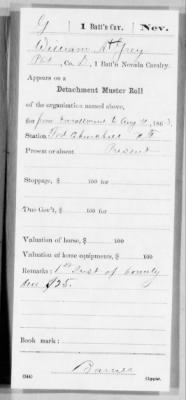 G | 1 Batt'n Cav. | Nev.
William H. Grey
Pvt., Co. D, 1 Batt'n Nevada Cavalry.
Appears on a
Detachment Muster Roll
of the organization named above,
for from Enrollment to Aug 31, 1863.
Station Fort Churchill N T
Present or absent Present
Stoppage, $ 100 for
Due Gov't, $ 100 for
Valuation of horse, $ 100
Valuation of horse equipments, $ 100
Remarks: 1st Inst of bounty
due $25.
Book mark:
Barnes
(344) Copyist.